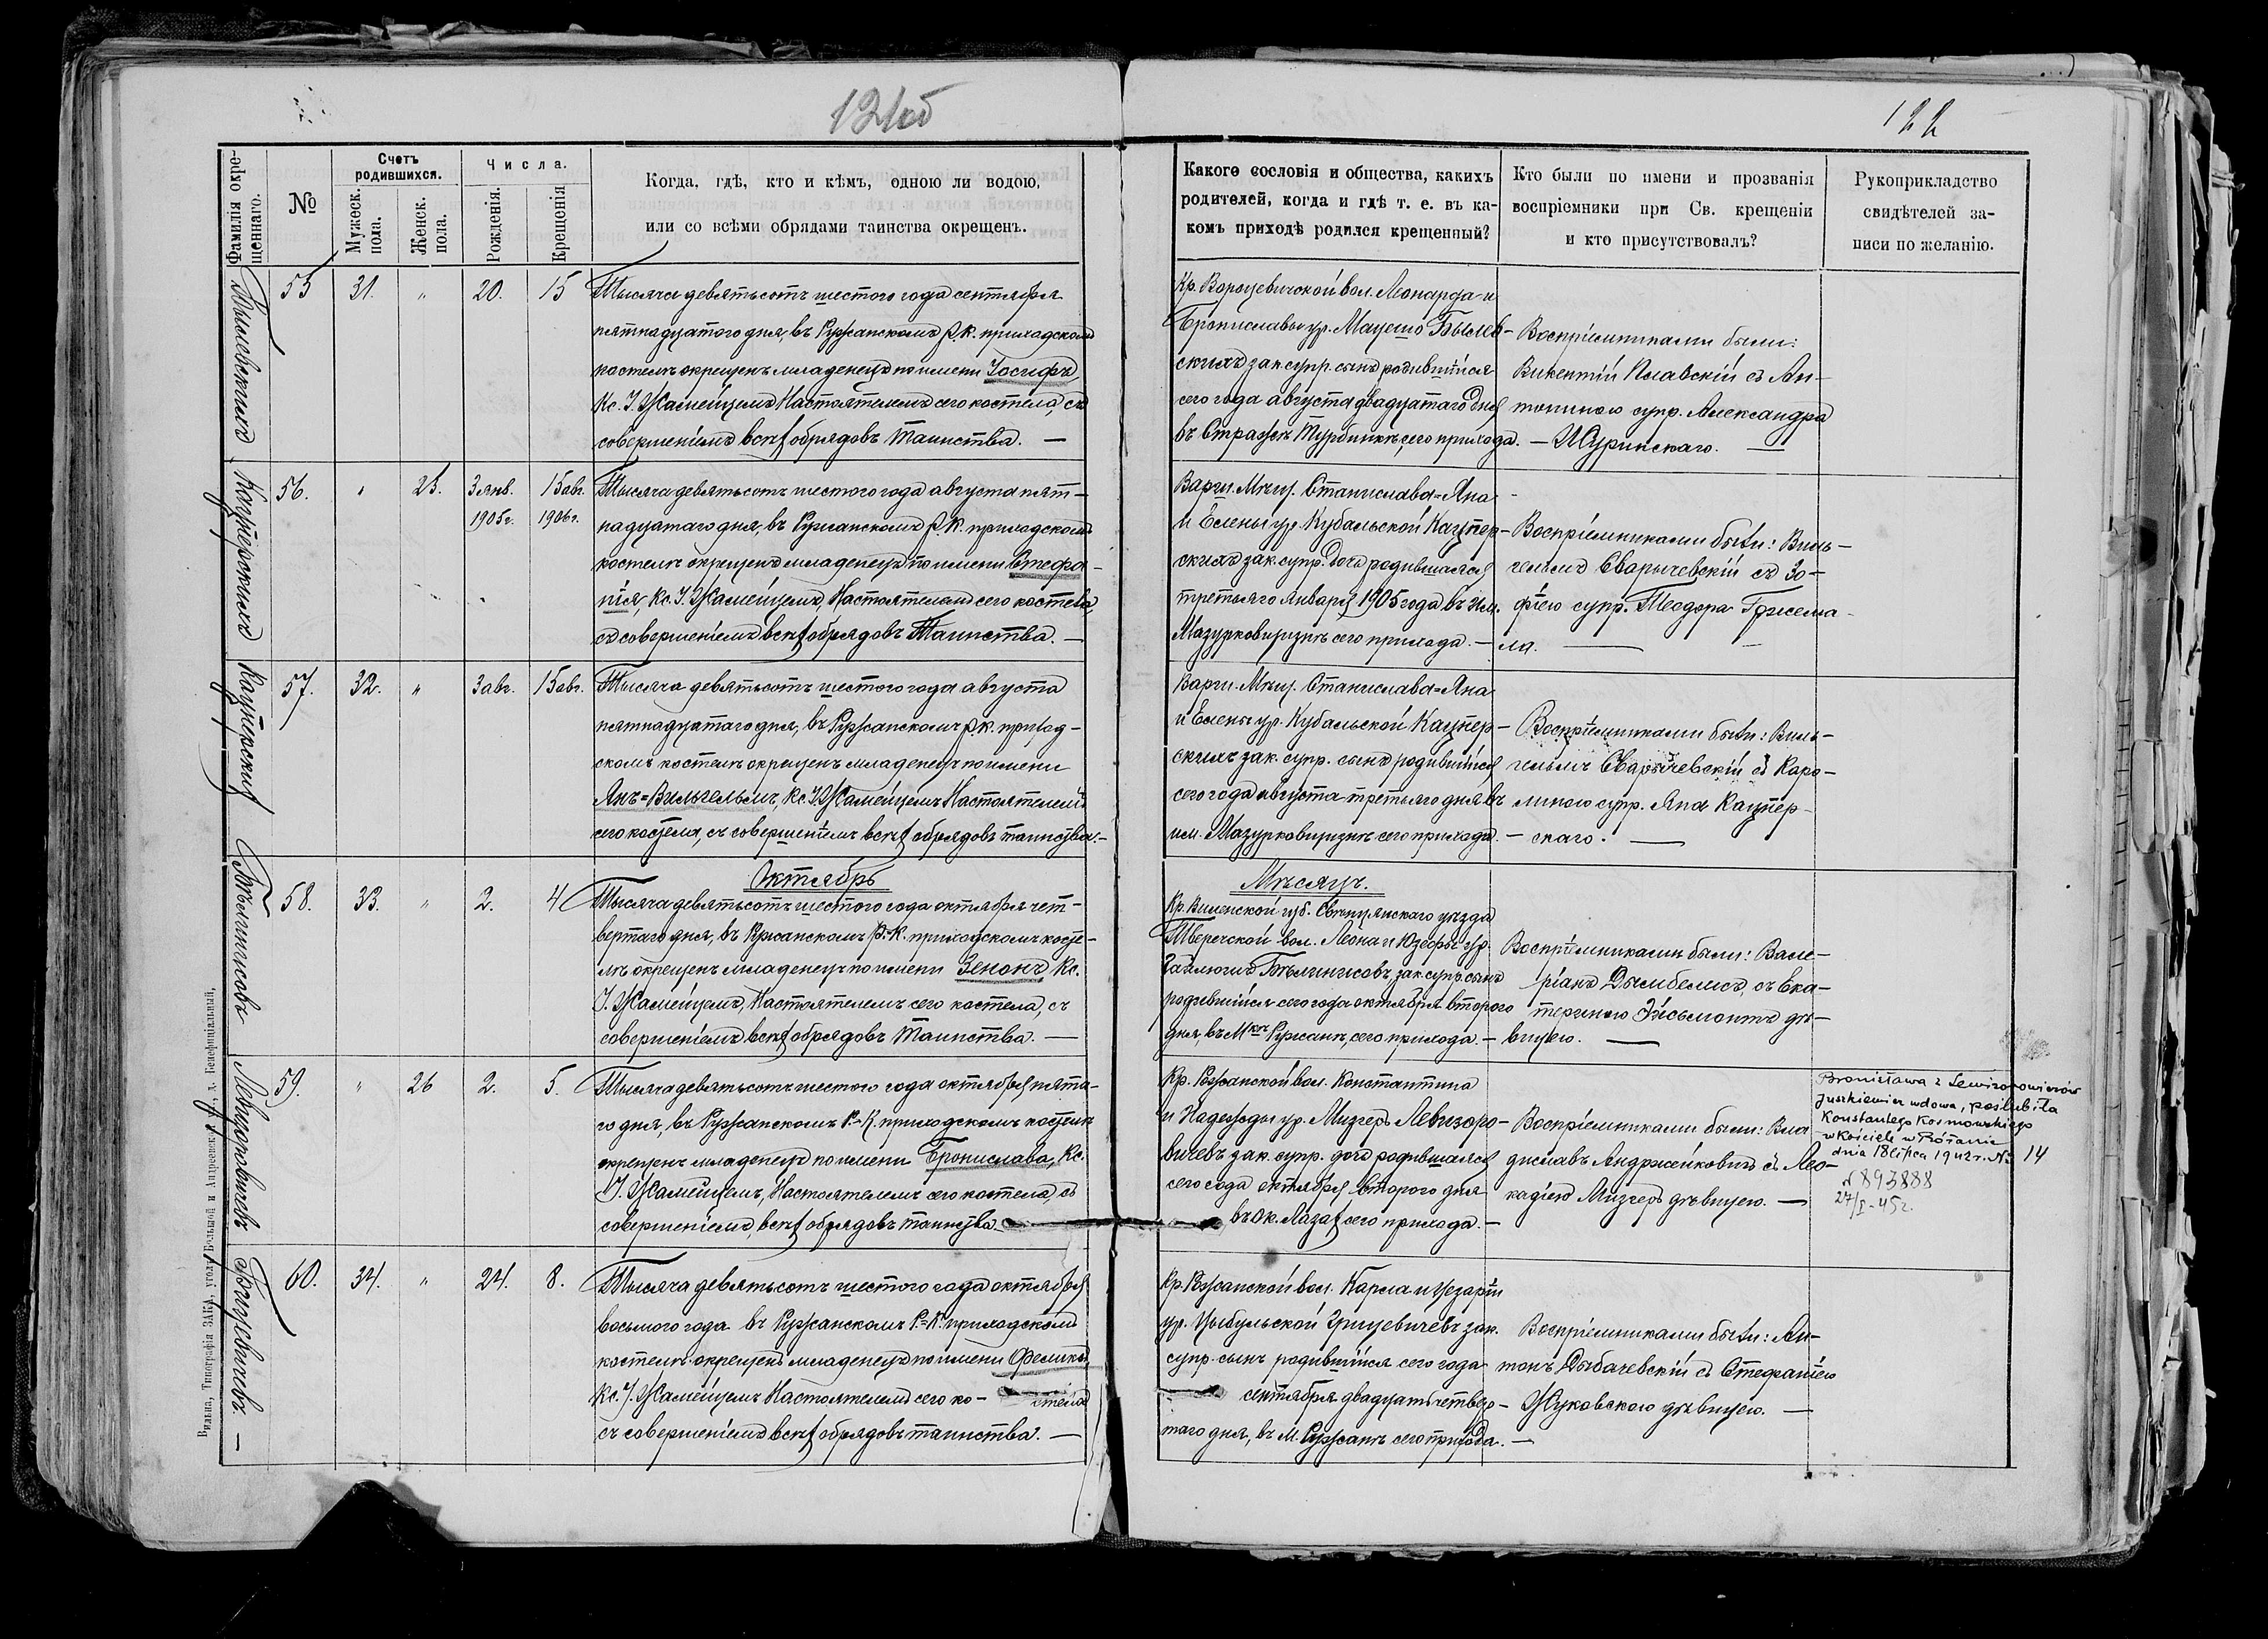 121об
122
Фамилія окре-
щеннаго.
№
Счетъ
родившихся.
Мужеск.
пола.
Женск.
пола.
Числа.
Рожденія.
Крещенія
Когда, гдѣ, кто и кѣмъ, одною ли водою,
или со всѣми обрядами таинства окрещенъ.
Какого сословія и общества, какихъ
родителей, когда и гдѣ т. е. въ ка-
комъ приходѣ родился крещенный?
Кто были по имени и прозванія
воспріемники при Св. крещеніи
и кто присутствовалъ?
Рукоприкладство
свидѣтелей за-
писи по желанію.
55 31. " 20. 15
Тысяча девятьсотъ шестого года сентября
пятнадцатого дня, въ Ружанскомъ Р.К. приходскомъ
костелѣ окрещенъ младенецъ по имени Іосифъ,
Кс. І. Жамейцемъ Настоятелемъ сего костела, съ
совершеніемъ всѣхъ обрядовъ Таинства. —
Кр. Вороцевичской вол. Леонарда и
Брониславы ур. Мацешо Былев-
скихъ зак. супр. сынъ родившійся
сего года августа двадцатаго дня
въ Стражѣ Турбинкѣ, сего прихода. —
Воспріемниками были:
Викентій Плавскій съ Ан-
тониною супр. Александра
Щуринскаго. —
Кацперскихъ
56. " 25. 3 янв. 1905г. 15 авг. 1906г.
Тысяча девятьсотъ шестого года августа пят-
надцатаго дня, въ Ружанскомъ Р.К. приходскомъ
костелѣ окрещенъ младенецъ по имени Стефа-
нія, Кс. І. Жамейцемъ, Настоятелемъ сего костела,
съ совершеніемъ всѣхъ обрядовъ Таинства. —
Варш. Мѣщ. Станислава=Яна
и Елены ур. Кубальской Кацпер-
скихъ зак. супр. дочь родившаяся
третьяго Января 1905 года въ им.
Мазурковщизнѣ сего прихода. —
Воспріемниками были: Виль-
гельмъ Сварычевскій съ Зо-
фіею супр. Теодора Гржема-
ла. —
Кацперскій
57. 32. " 3 авг. 15 авг.
Тысяча девятьсотъ шестого года августа
пятнадцатаго дня, въ Ружанскомъ Р.К. приход-
скомъ костелѣ окрещенъ младенецъ по имени
Янъ=Вильгельмъ, Кс. І. Жамейцемъ Настоятелемъ
сего костела, съ совершеніемъ всѣхъ обрядовъ таинства. —
Варш. Мѣщ. Станислава=Яна
и Елены ур. Кубальской Кацпер-
скихъ зак. супр. сынъ родившійся
сего года августа третьяго дня въ
им. Мазурковщизнѣ сего прихода. —
Воспріемниками были: Виль-
гельмъ Сварычевскій съ Каро-
линою супр. Яна Кацпер-
скаго. —
Октябрь
Мѣсяцъ.
58. 33. " 2. 4
Тысяча девятьсотъ шестого года октября чет-
вертаго дня, въ Ружанскомъ Р.-К. приходскомъ косте-
лѣ окрещенъ младенецъ по имени Зенонъ, Кс.
І. Жамейцемъ, Настоятелемъ сего костела, съ
совершеніемъ всѣхъ обрядовъ Таинства. —
Кр. Виленской губ. Свѣнцянскаго уѣзда
Тверечской вол. Леона и Юзефы ур.
зак. супр. сынъ
родившійся сего года октября второго
дня, въ Мкѣ Ружанѣ, сего прихода. —
Воспріемниками были: Вале-
ріанъ Дымбелисъ, съ Ека-
териною дѣ-
вицею. —
Левизоровичевъ
59. " 26 2. 5.
Тысяча девятьсотъ шестого года октября пята-
го дня, въ Ружанскомъ Р.-К. приходскомъ костелѣ
окрещенъ младенецъ по имени Бронислава, Кс.
І. Жамейцемъ, Настоятелемъ сего костела, съ
совершеніемъ всѣхъ обрядовъ таинства.
Кр. Ружанской вол. Константина
и Надежды ур. Мизгеръ Левизоро-
вичевъ зак. супр. дочь родившаяся
сего года октября второго дня
въ ок. Лазахъ сего прихода. —
Воспріемниками были: Вла-
диславъ Андржейковичъ съ Лео-
кадіею Мизгеръ дѣвицею. —
Bronisława z Lewizorowiczów
Juszkiewicz wdowa, poślubiła
Konstantego Kosmowskiego
w Kościele w Różanie
dnia 18 lipca 1942 r. № 14
№ 893888
27/I-45г.
60. 34. " 24. 8.
Тысяча девятьсотъ шестого года октября
восьмого года въ Ружанскомъ Р.-К. приходскомъ
костелѣ окрещенъ младенецъ по имени Феликсъ,
Кс. І. Жамейцемъ Настоятелемъ сего ко- стела
съ совершеніемъ всѣхъ обрядовъ таинства. —
Кр. Ружанской вол. Карла и Цезаріи
ур. Цыбульской Грицевичевъ зак.
супр. сынъ родившійся сего года
сентября двадцать четвер-
таго дня, въ М. Ружанѣ сего прихода. —
Воспріемниками были: Ан-
тонъ Дыбачевскій съ Стефаніею
Жуковскою дѣвицею. —
Вильна, Типографія ЗАКА, уголъ Большой и Андреевской ул., д. Бенефиціальный.